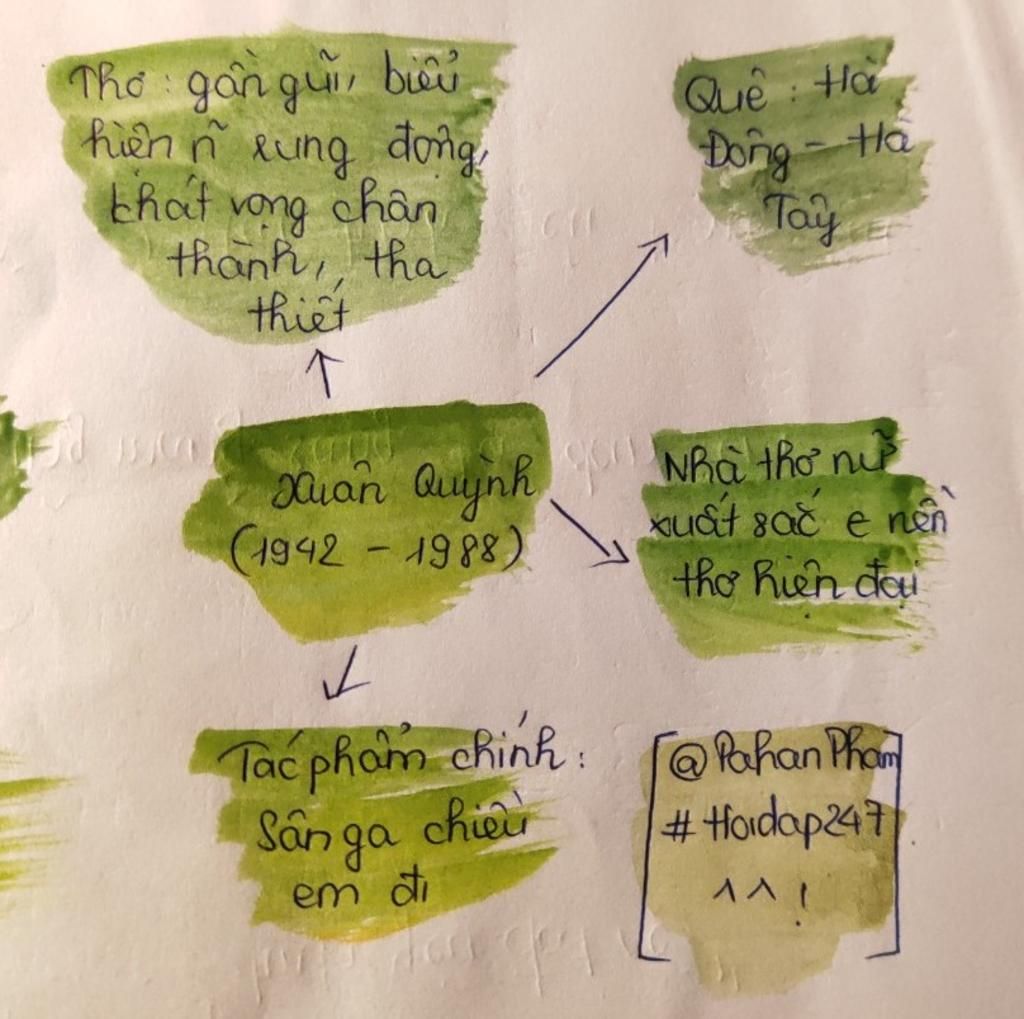 Thơ: gần gũi, biểu
hiện ñ rung động,
khát vọng chân
thành, tha
thiết
Quê: Hà
Đông - Hà
Tây
Xuân Quỳnh
(1942 - 1988)
Nhà thơ nữ
xuất sắc e nền
thơ hiện đại
Tác phẩm chính:
Sân ga chiều
em đi
@PahanPham
#Hoidap247
^^!